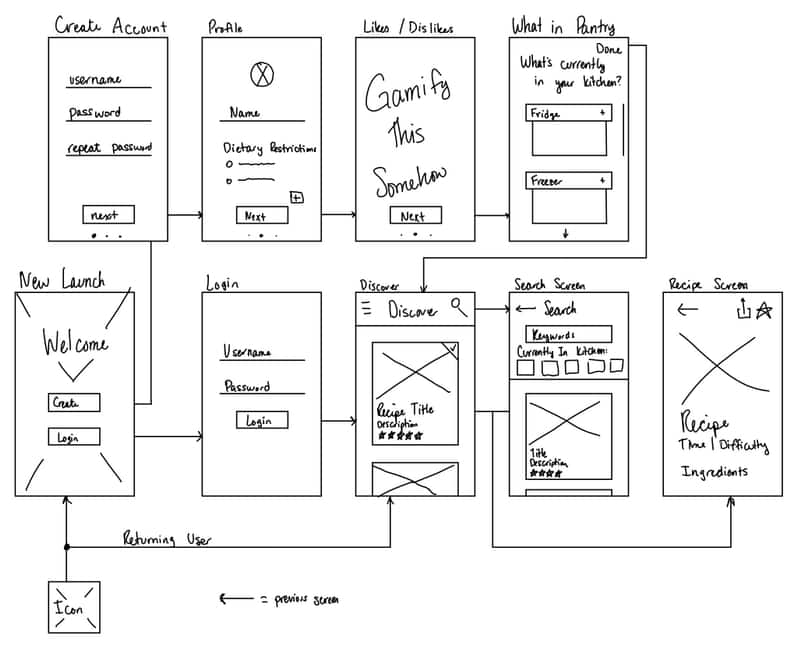 Create Account
username
password
repeat password
next
Profile
Name
Dietary Restrictions
+
Next
Likes / Dislikes
Gamify
This
Somehow
Next
What in Pantry
Done
What's currently
in your kitchen?
Fridge +
Freezer +
New Launch
Welcome
Create
Login
Login
Username
Password
Login
Discover
Discover
Recipe Title
Description
Search Screen
Search
Keywords
Currently In Kitchen:
Title
Description
Recipe Screen
Recipe
Time | Difficulty
Ingredients
Returning User
Icon
= previous screen